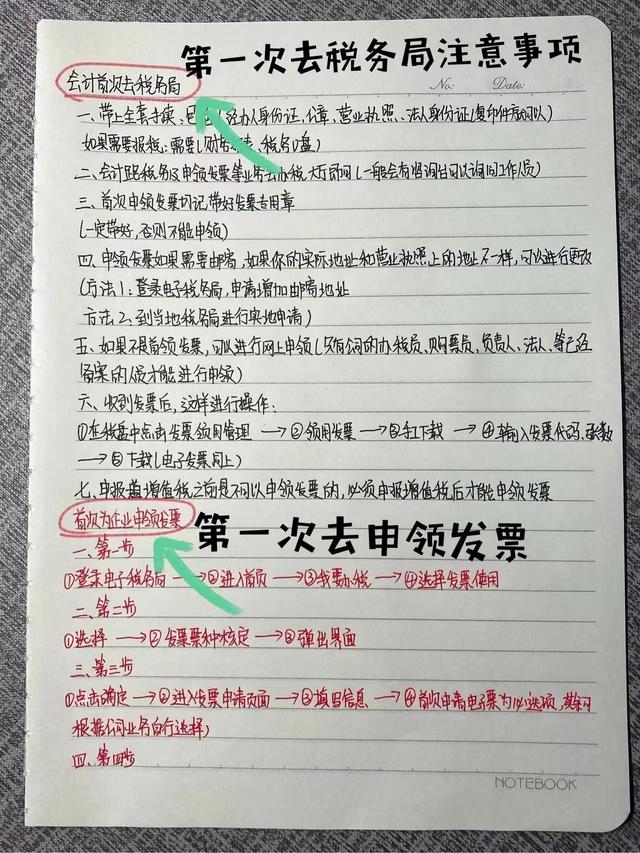 第一次去税务局注意事项
会计首次去税务局
No: Date:
一、带上全套手续、经办人身份证、公章、营业执照、法人身份证(复印件度可以)
如果需要报税、需要(财务、税务U盘)
二、会计跑税务及申领发票等业务去办税大厅问(一般会有咨询台可以询问工作人员)
三、首次申领发票切记带好发票专用章
(一定带好,否则不能申领)
四、申领发票如果需要邮寄,如果你的实际地址和营业执照上的地址不一样,可以进行更改
(方法1:登录电子税务局,申请增加邮寄地址
方法2、到当地税务局进行实地申请)
五、如果不是首领发票,可以进行网上申领(只有公司的办税员、购票员、负责人、法人、等已经
备案的人员才能进行申领)
六、收到发票后,这样进行操作:
①在税盘中点击发票领用管理→②领用发票→③下载→④输入发票代码、张数
→⑤下载(电子发票同上)
七、申报增值税之前是不可以申领发票的,必须申报增值税后才能申领发票
首次为企业申领发票
第一次去申领发票
一、第一步
①登录电子税务局→②进入首页→③我要办税→④选择发票使用
二、第二步
①选择→②发票票种核定→③弹出界面
三、第三步
①点击确定→②进入发票申请页面→③填写信息→④首次申请电子票为必选项,其余可
根据公司业务自行选择)
四、第四步
NOTEBOOK